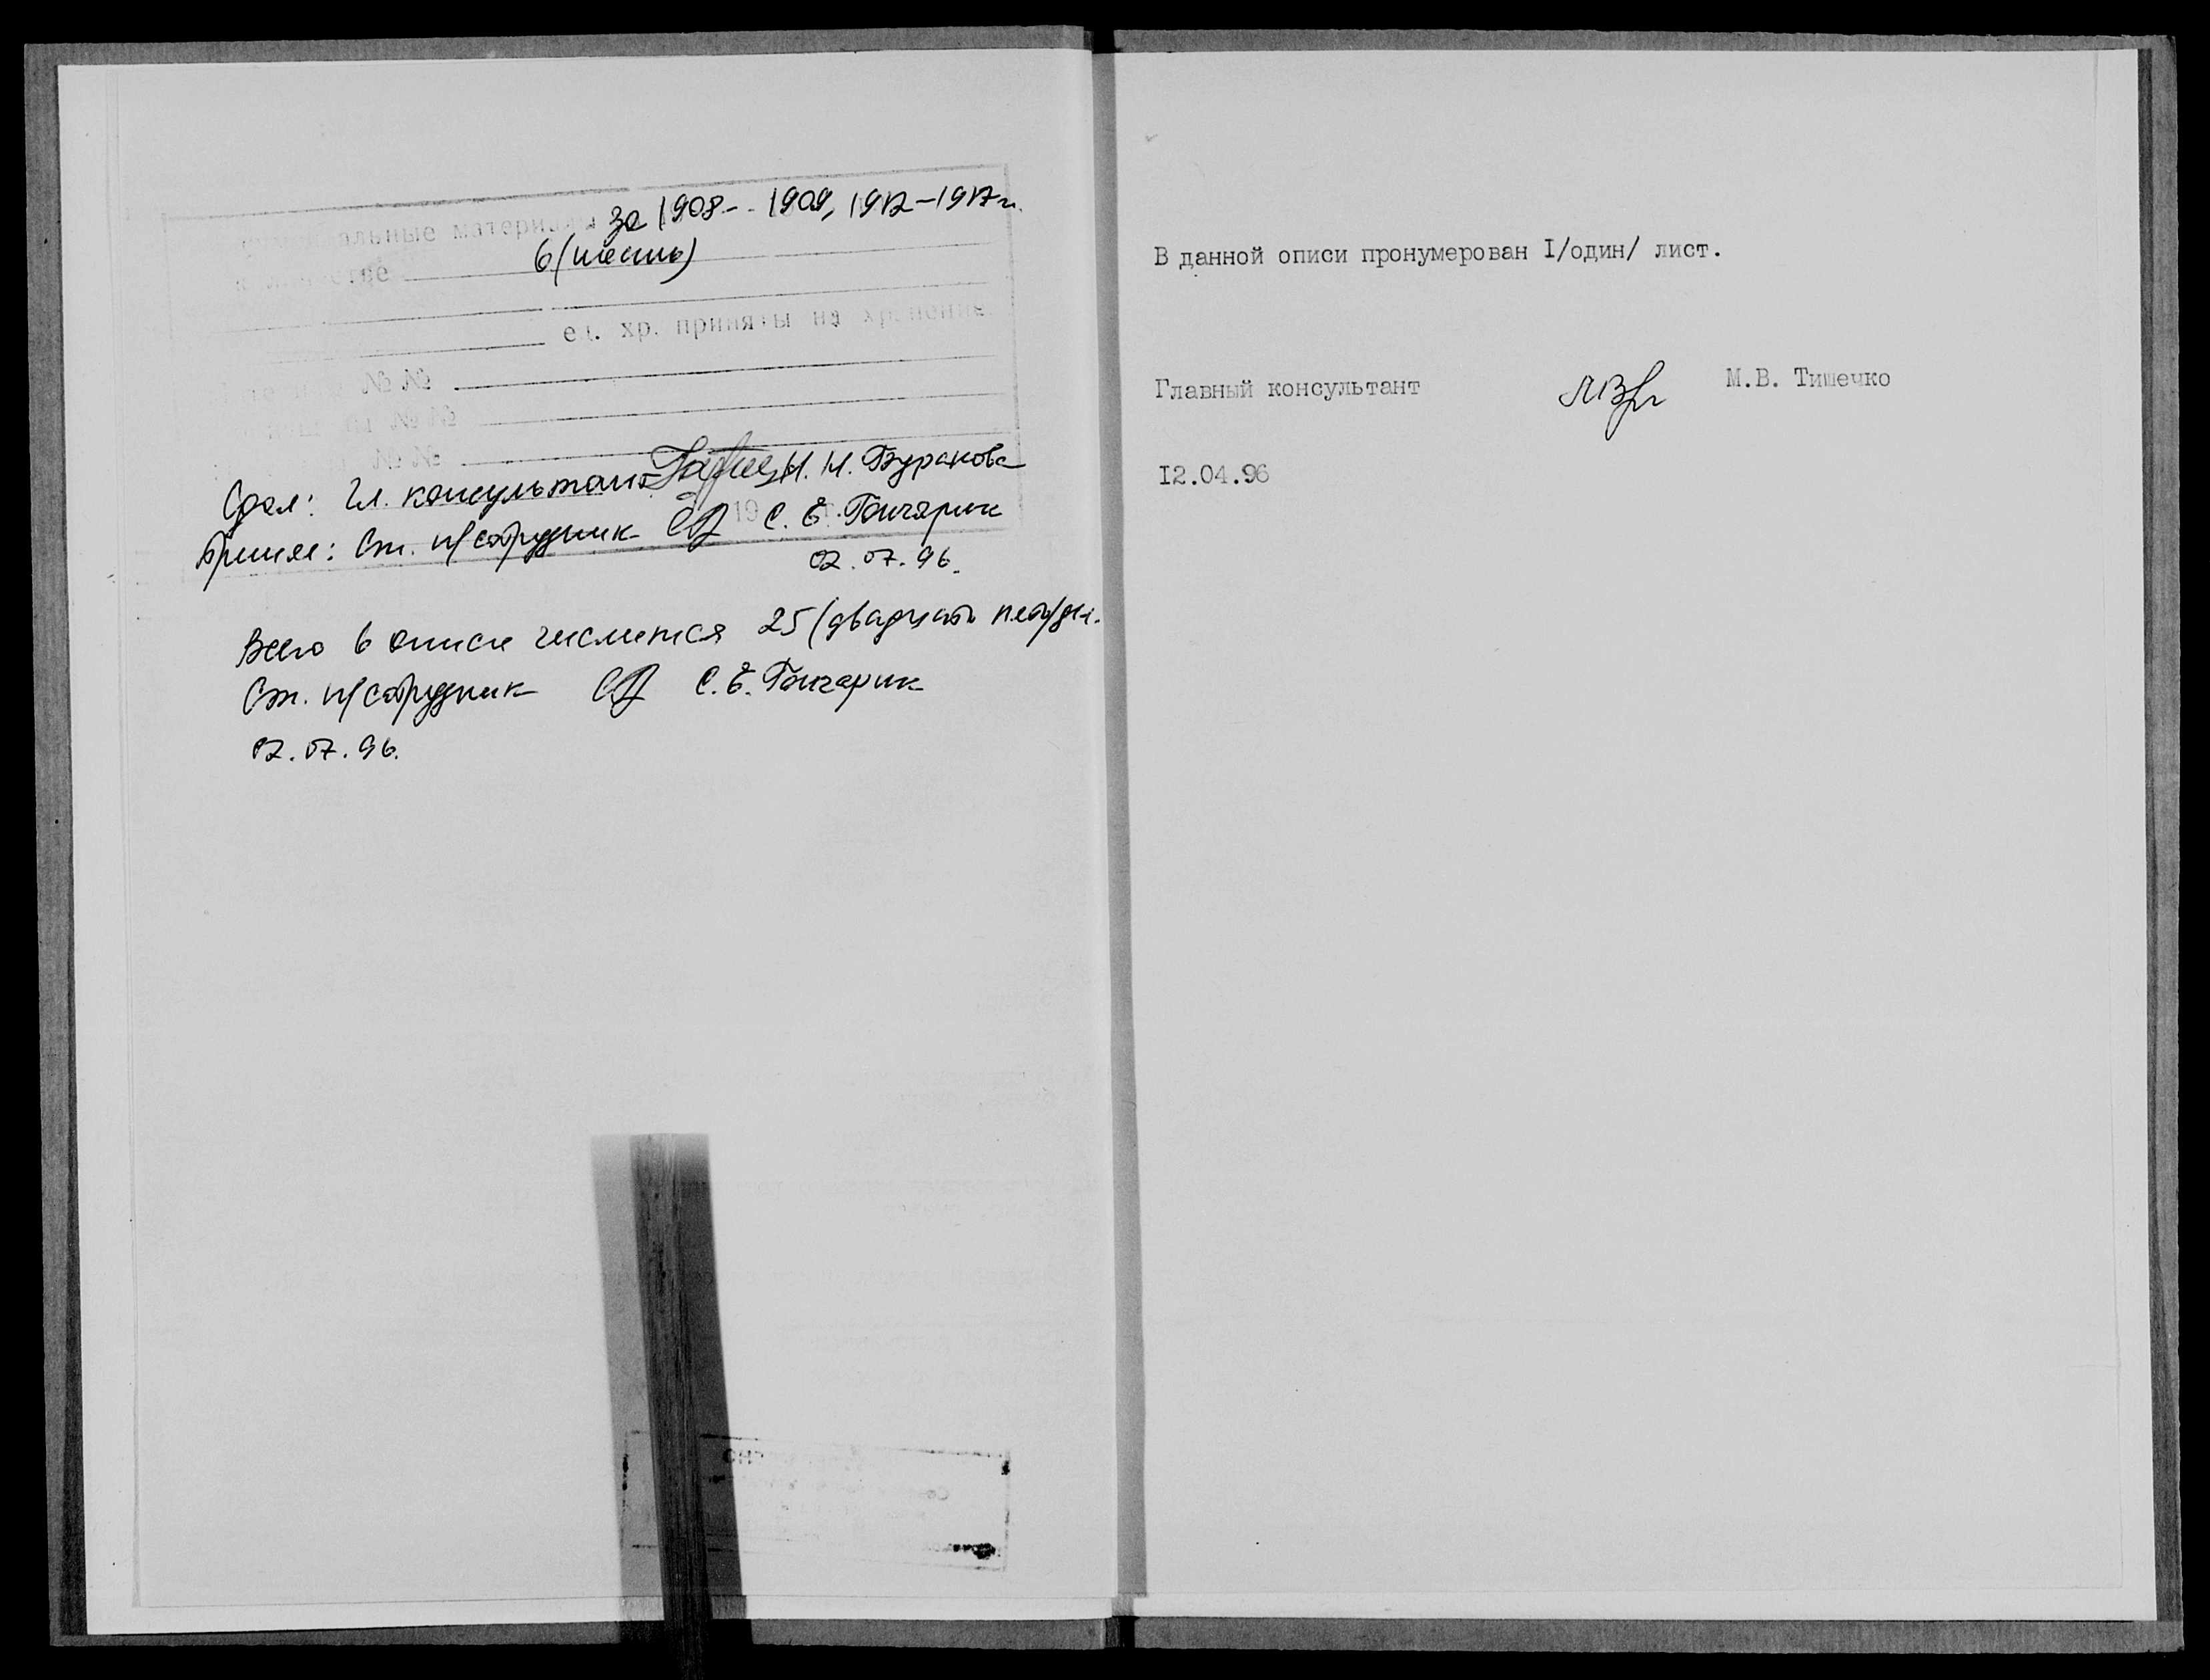 материалы за 1908 - 1909, 1912-1917 гг.
6 (шесть)
ед. хр. приняты на хранение
№ №
№ №
№ №
Сдал: Гл. консультант Н. Н. Буракова
19
Принял: Ст. н/сотрудник С. Е. Гончарик
02.07.96.
Всего в описи числится 25 (двадцать пять) д.
Ст. н/сотрудник С. Е. Гончарик
02.07.96.
В данной описи пронумерован I/один/ лист.
Главный консультант М.В. Тишечко
I2.04.96